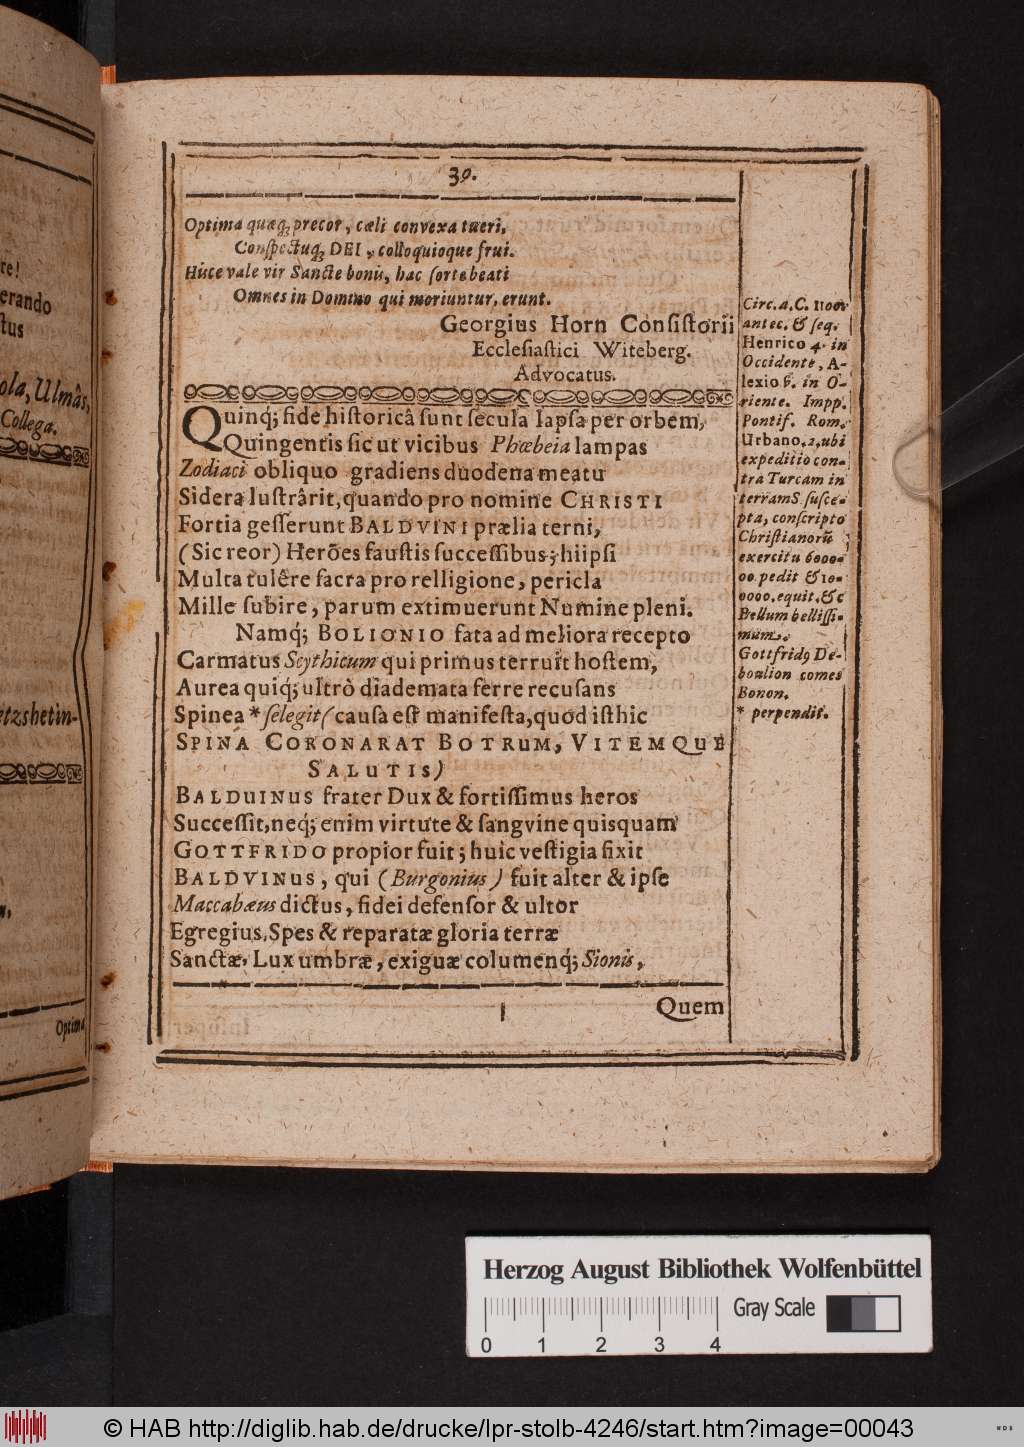 39.
Optima quæq; precor, cæli convexa tueri,
Conſpectuq; DEI, colloquioque frui.
Hûc vale vir Sancte bonis, hac ſorte beati
Omnes in Domino qui moriuntur, erunt.
Georgius Horn Conſiſtorii
Eccleſiaſtici Witeberg.
Advocatus.
Quinq; fide hiſtoricâ ſunt ſecula lapſa per orbem,
Quingentis ſic ut vicibus Phœbeia lampas
Zodiaci obliquo gradiens duodena meatu
Sidera luſtrârit, quando pro nomine CHRISTI
Fortia geſſerunt BALDVINI prælia terni,
(Sic reor) Herões fauſtis ſucceſſibus; hi ipſi
Multa tulêre ſacra pro relligione, pericla
Mille ſubire, parum extimuerunt Numine pleni.
Namq́; BOLIONIO fata ad meliora recepto
Carmatus Scythicum qui primus terruit hoſtem,
Aurea quiq́; ultrò diademata ferre recuſans
Spinea * ſelegit (cauſa eſt manifeſta, quod iſthic
SPINA CORONARAT BOTRUM, VITEMQUE
SALUTIS)
BALDUINUS frater Dux & fortiſſimus heros
Succeſſit, neq́; enim virtute & ſangvine quisquam
GOTTFRIDO propior fuit; huic veſtigia fixit
BALDVINUS, qui (Burgonius) fuit alter & ipſe
Maccabæus dictus, fidei defenſor & ultor
Egregius, Spes & reparatæ gloria terræ
Sanctæ, Lux umbræ, exiguæ columenq́; Sionis,
Quem
Circ. a. C. 1100.
antec. & ſeq.
Henrico 4. in
Occidente, A-
lexio 6. in O-
riente. Impp.
Pontif. Rom.
Urbano. 2, ubi
expeditio con-
tra Turcam in
terram S. ſuſce-
pta, conſcripto
Chriſtianorũ
exercitu 6000-
00 pedit & 10-
0000. equit. &c
Bellum belliſſi-
mum.
Gottfridꝰ De-
boulion comes
Bonon.
* perpendit.
re!
erando
tus
ola, Ulmâs,
Collega.
etzshetin-
Optima
Herzog August Bibliothek Wolfenbüttel
Gray Scale
0 1 2 3 4
© HAB http://diglib.hab.de/drucke/lpr-stolb-4246/start.htm?image=00043